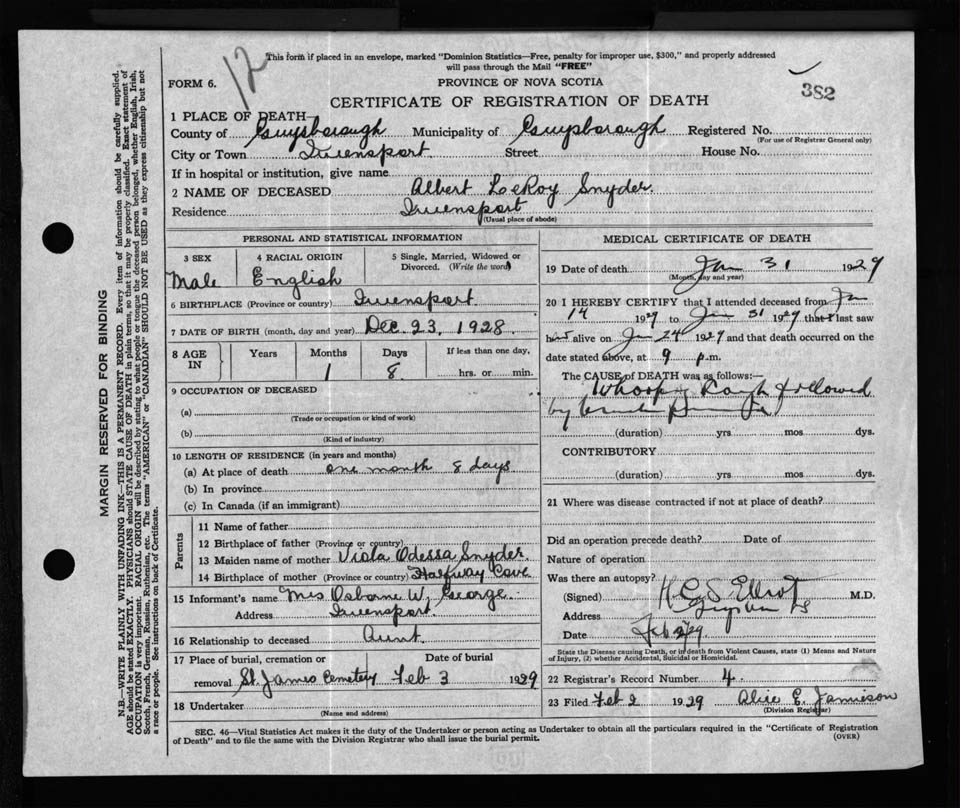 12
This form if placed in an envelope, marked "Dominion Statistics—Free, penalty for improper use, $300," and properly addressed
will pass through the Mail "FREE"
FORM 6.
PROVINCE OF NOVA SCOTIA
382
CERTIFICATE OF REGISTRATION OF DEATH
1 PLACE OF DEATH
County of Guysborough Municipality of Guysborough Registered No.
(For use of Registrar General only)
City or Town Queensport Street House No.
If in hospital or institution, give name
2 NAME OF DECEASED Albert LeRoy Snyder
Residence Queensport
(Usual place of abode)
PERSONAL AND STATISTICAL INFORMATION
3 SEX 4 RACIAL ORIGIN 5 Single, Married, Widowed or
Divorced. (Write the word)
Male English
6 BIRTHPLACE (Province or country) Queensport
7 DATE OF BIRTH (month, day and year) Dec 23, 1928.
8 AGE IN Years Months Days If less than one day,
1 8 hrs. or min.
9 OCCUPATION OF DECEASED
(a)
(Trade or occupation or kind of work)
(b)
(Kind of industry)
10 LENGTH OF RESIDENCE (in years and months)
(a) At place of death one month 8 days
(b) In province
(c) In Canada (if an immigrant)
Parents
11 Name of father
12 Birthplace of father (Province or country)
13 Maiden name of mother Viola Odessa Snyder
14 Birthplace of mother (Province or country) Halfway Cove
15 Informant's name Mrs Osborne W. George
Address Queensport
16 Relationship to deceased Aunt
17 Place of burial, cremation or Date of burial
removal St. James Cemetery Feb 3 1929
18 Undertaker
(Name and address)
MEDICAL CERTIFICATE OF DEATH
19 Date of death Jan 31 1929
(Month, day and year)
20 I HEREBY CERTIFY that I attended deceased from Jan
14 1929 to Jan 31 1929 that I last saw
him alive on Jan 24 1929 and that death occurred on the
date stated above, at 9 p.m.
The CAUSE of DEATH was as follows:
Whooping Cough followed
by
(duration) yrs mos dys.
CONTRIBUTORY
(duration) yrs mos dys.
21 Where was disease contracted if not at place of death?
Did an operation precede death? Date of
Nature of operation
Was there an autopsy?
(Signed) H.C.S. Elliot M.D.
Address Guysboro NS
Date Feb 2/29
State the Disease causing Death, or in death from Violent Causes, state (1) Means and Nature
of Injury, (2) whether Accidental, Suicidal or Homicidal.
22 Registrar's Record Number 4.
23 Filed Feb 2 1929 Alice E. Jamieson
(Division Registrar)
SEC. 46—Vital Statistics Act makes it the duty of the Undertaker or person acting as Undertaker to obtain all the particulars required in the "Certificate of Registration
of Death" and to file the same with the Division Registrar who shall issue the burial permit.
(OVER)
MARGIN RESERVED FOR BINDING
N.B.—WRITE PLAINLY WITH UNFADING INK—THIS IS A PERMANENT RECORD. Every item of information should be carefully supplied.
AGE should be stated EXACTLY. PHYSICIANS should STATE CAUSE OF DEATH in plain terms, so that it may be properly classified. Exact statement of
OCCUPATION is very important. RACIAL ORIGIN will be described by stating to what people or tongue the deceased person belonged, whether English, Irish,
Scotch, French, German, Russian, Ruthenian, etc. The terms "AMERICAN" or "CANADIAN" SHOULD NOT BE USED as they express citizenship but not
a race or people. See instructions on back of Certificate.